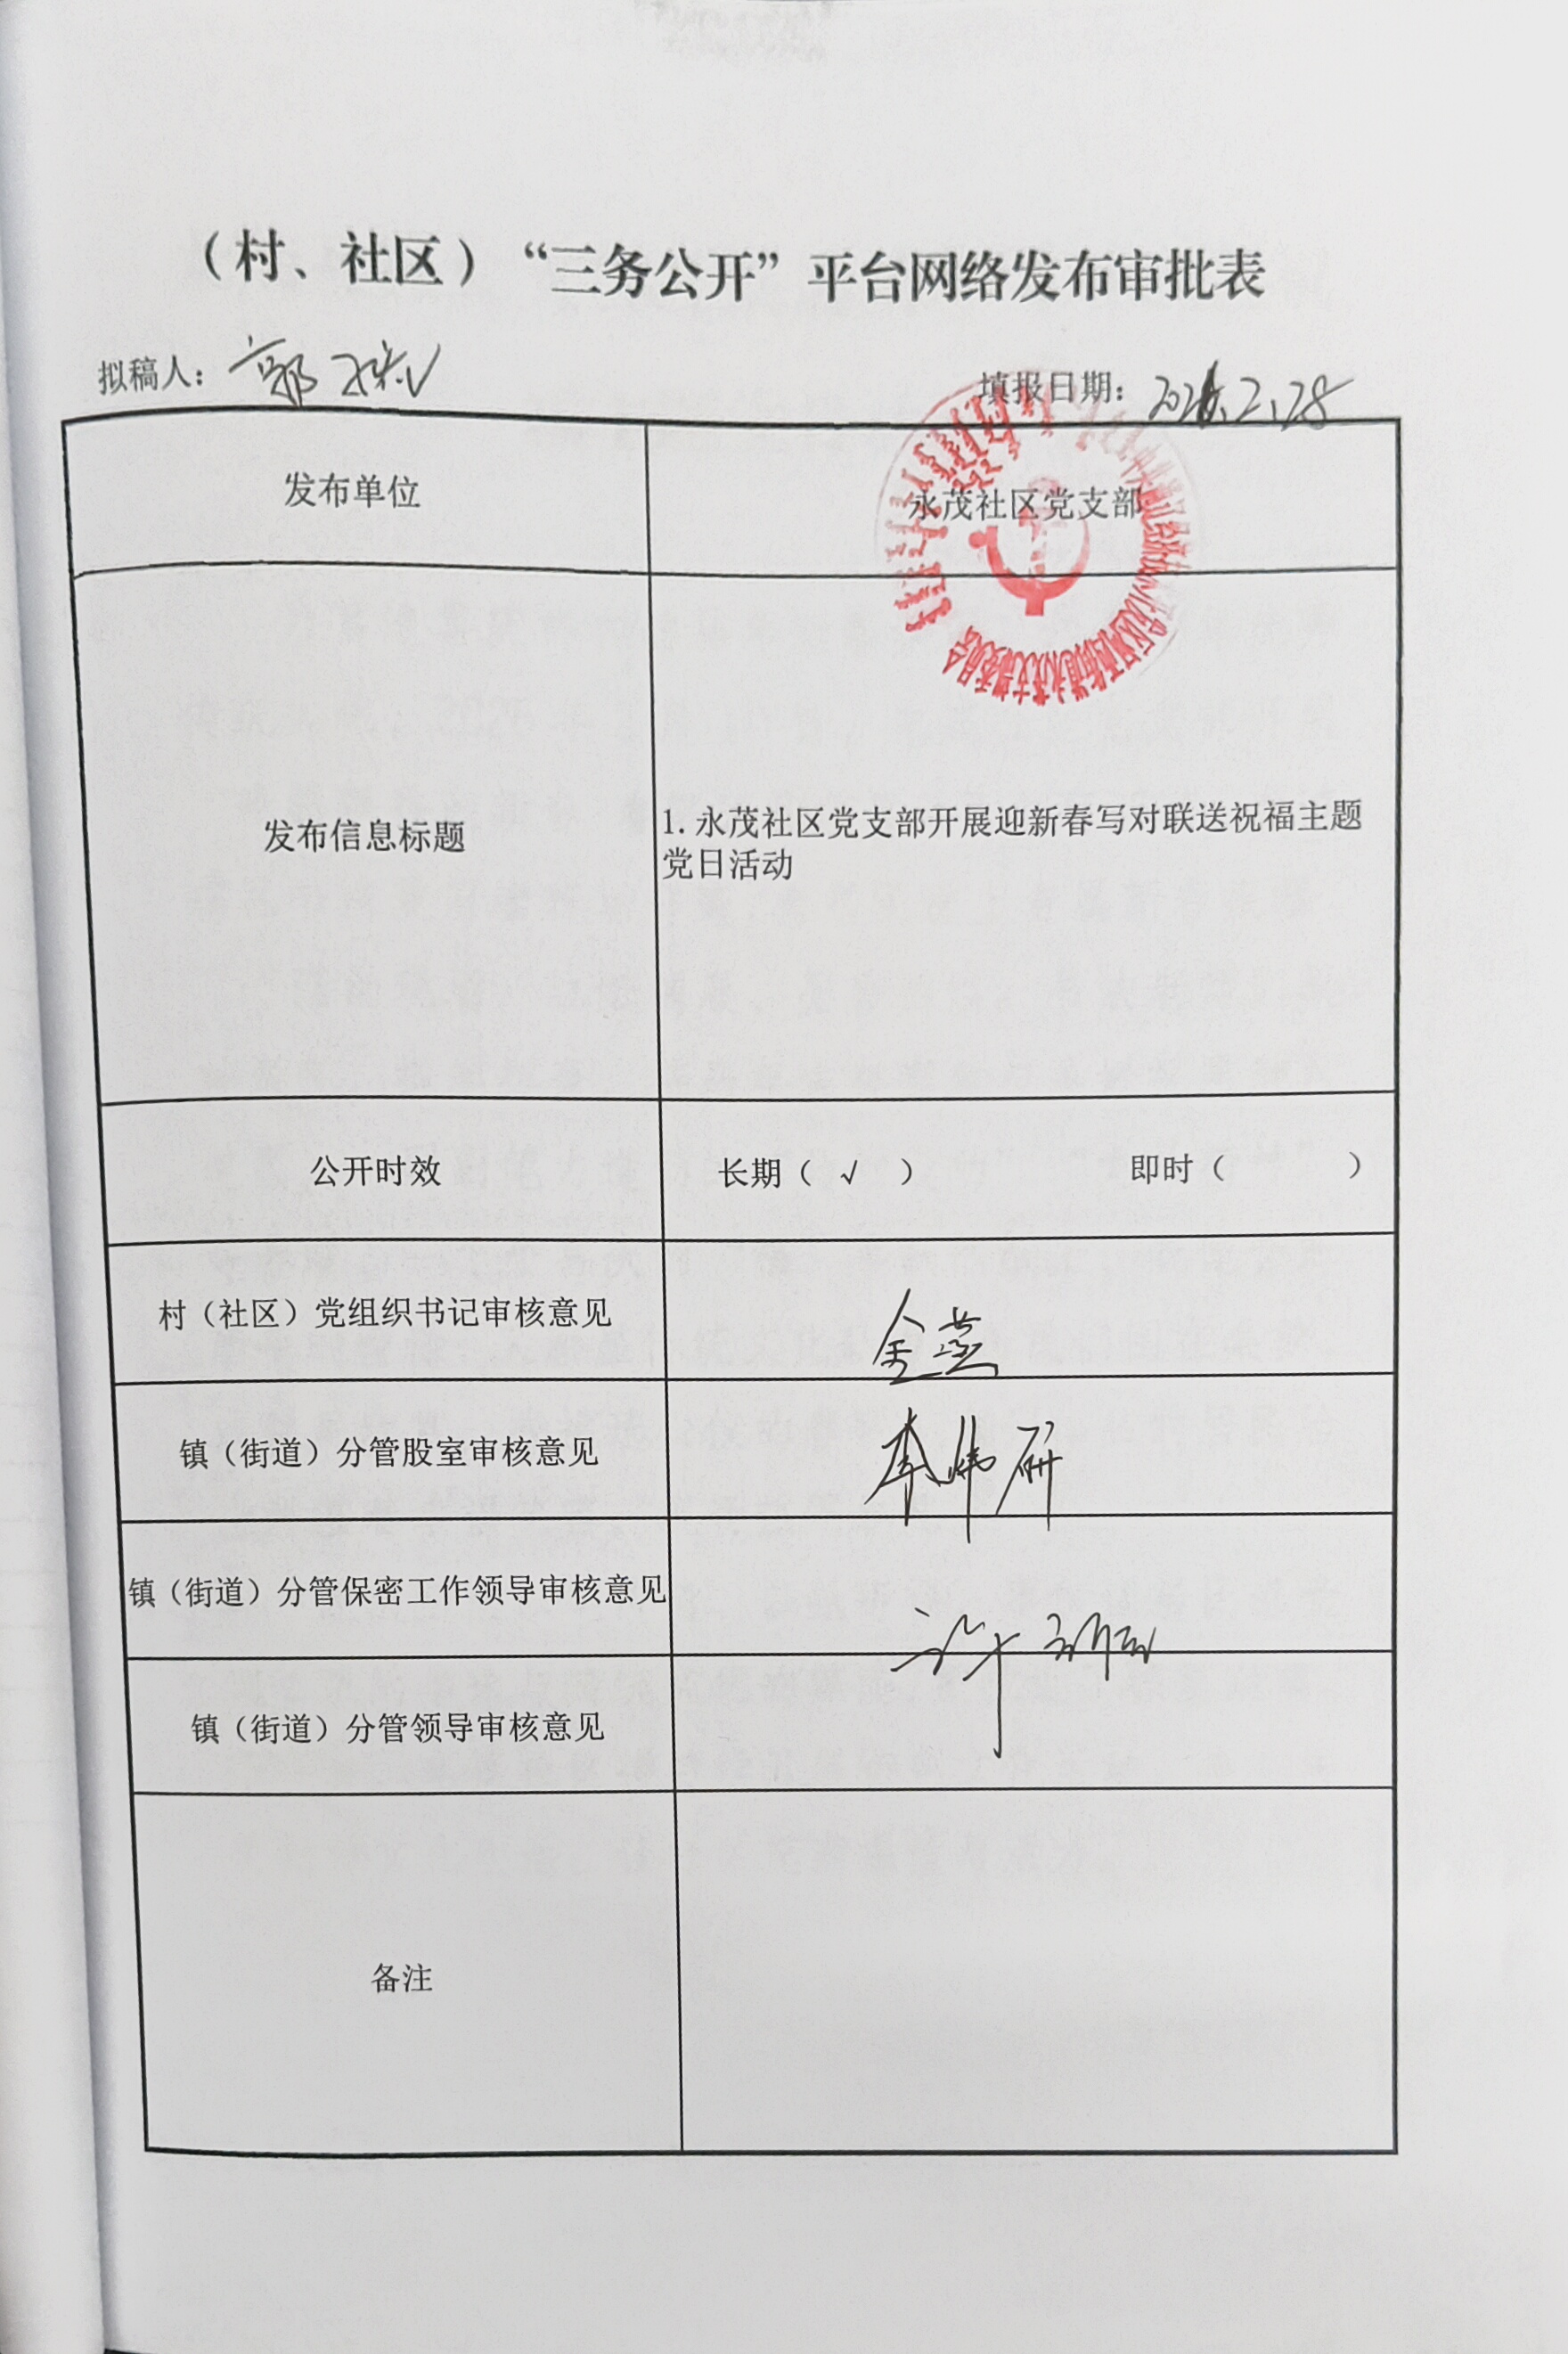 （村、社区）“三务公开”平台网络发布审批表
拟稿人：郭
填报日期：2026.2.28
发布单位
永茂社区党支部
发布信息标题
1. 永茂社区党支部开展迎新春写对联送祝福主题
党日活动
公开时效
长期（ √ ）
即时（ ）
村（社区）党组织书记审核意见
金燕
镇（街道）分管股室审核意见
李炜研
镇（街道）分管保密工作领导审核意见
许
镇（街道）分管领导审核意见
备注